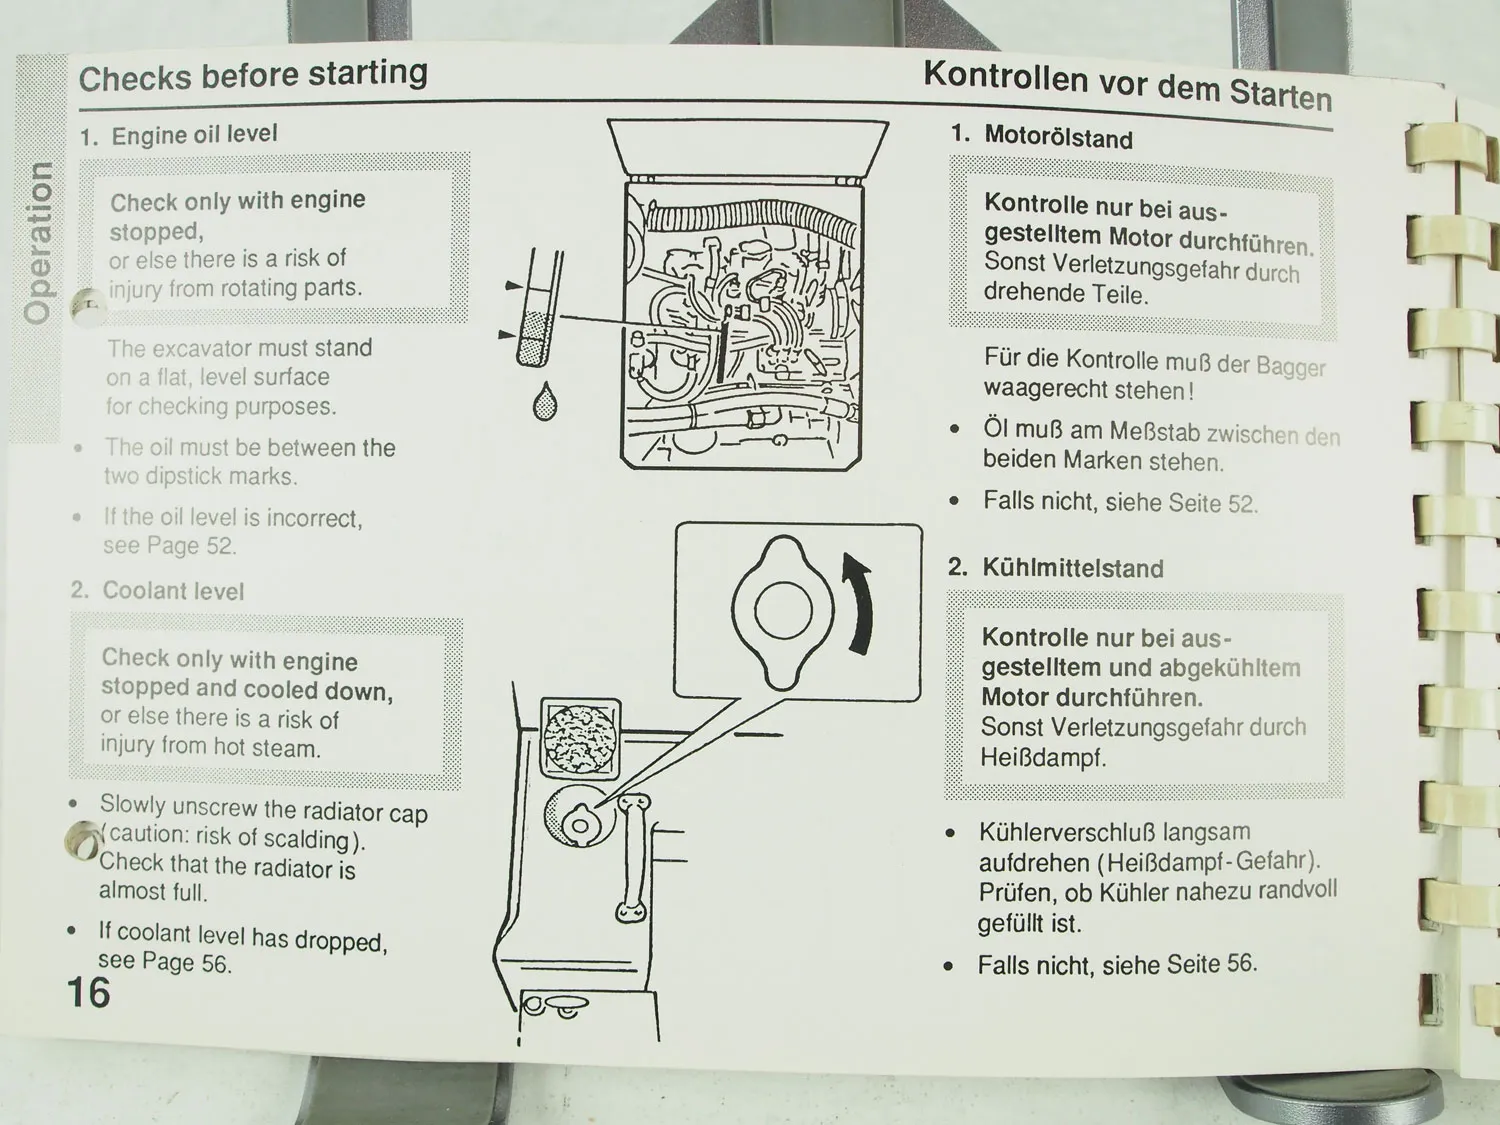 Operation
Checks before starting
1. Engine oil level
Check only with engine
stopped,
or else there is a risk of
injury from rotating parts.
The excavator must stand
on a flat, level surface
for checking purposes.
• The oil must be between the
two dipstick marks.
• If the oil level is incorrect,
see Page 52.
2. Coolant level
Check only with engine
stopped and cooled down,
or else there is a risk of
injury from hot steam.
• Slowly unscrew the radiator cap
(caution: risk of scalding).
Check that the radiator is
almost full.
• If coolant level has dropped,
see Page 56.
16
Kontrollen vor dem Starten
1. Motorölstand
Kontrolle nur bei aus-
gestelltem Motor durchführen.
Sonst Verletzungsgefahr durch
drehende Teile.
Für die Kontrolle muß der Bagger
waagerecht stehen!
• Öl muß am Meßstab zwischen den
beiden Marken stehen.
• Falls nicht, siehe Seite 52.
2. Kühlmittelstand
Kontrolle nur bei aus-
gestelltem und abgekühltem
Motor durchführen.
Sonst Verletzungsgefahr durch
Heißdampf.
• Kühlerverschluß langsam
aufdrehen (Heißdampf-Gefahr).
Prüfen, ob Kühler nahezu randvoll
gefüllt ist.
• Falls nicht, siehe Seite 56.